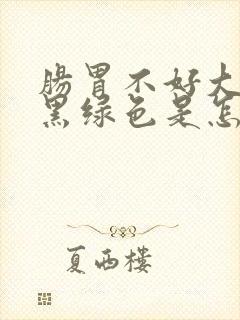 肠胃不好大
黑绿色是怎
夏西楼